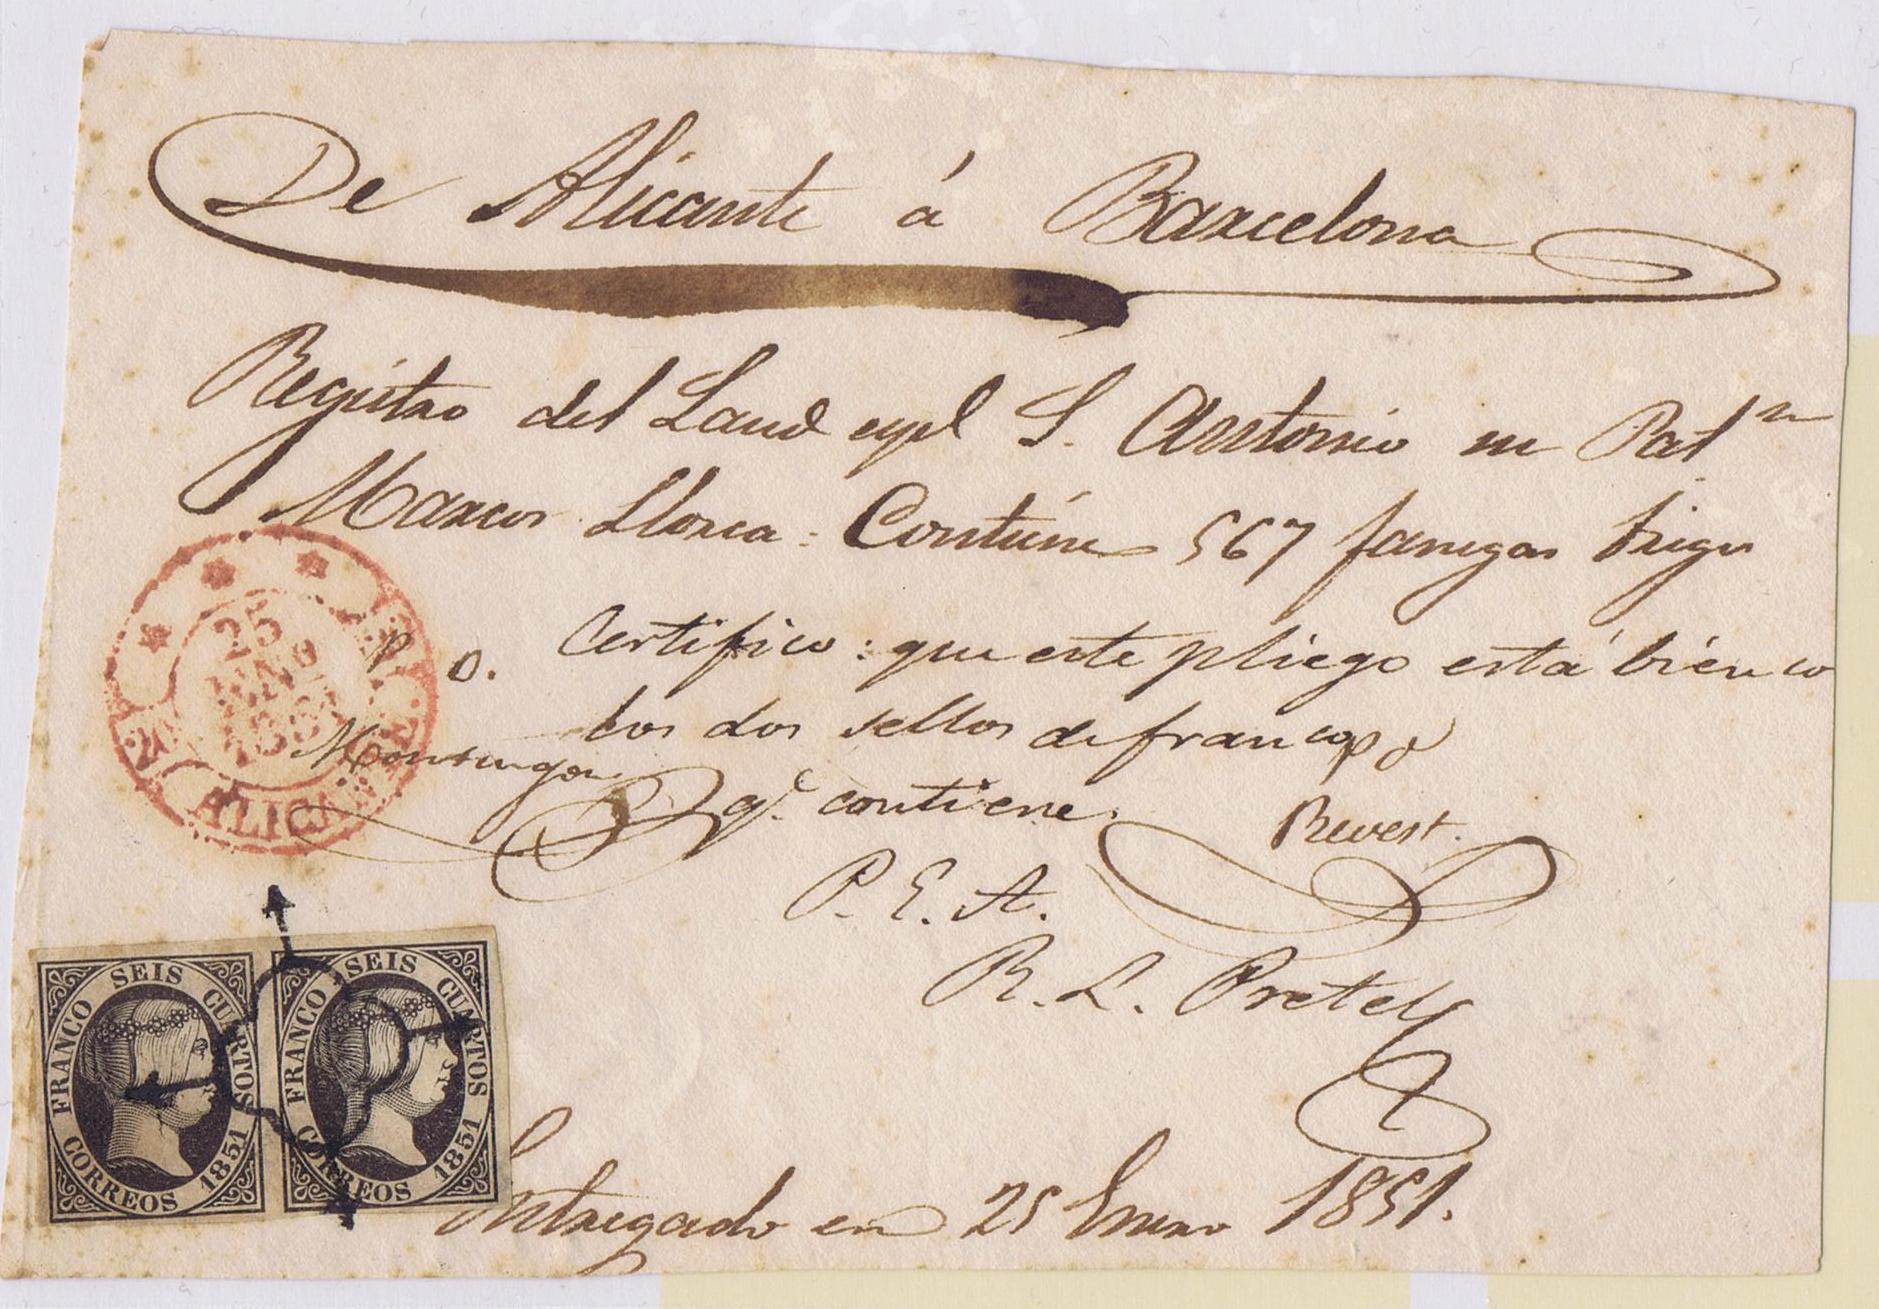 De Alicante á Barcelona
Registro del Laud espl S. Antonio su Patn
Marcos Llorca: Contiene 567 fanegas trigo
P. O. Certifico: que este pliego está bien co
los dos sellos de franco pr
qe contiene.
Revest.
P. E. A.
R. L. Pretel
Entregado en 25 Enero 1851.
25
ENE
1851
ALICANTE
FRANCO SEIS CUARTOS
CORREOS 1851
FRANCO SEIS CUARTOS
CORREOS 1851